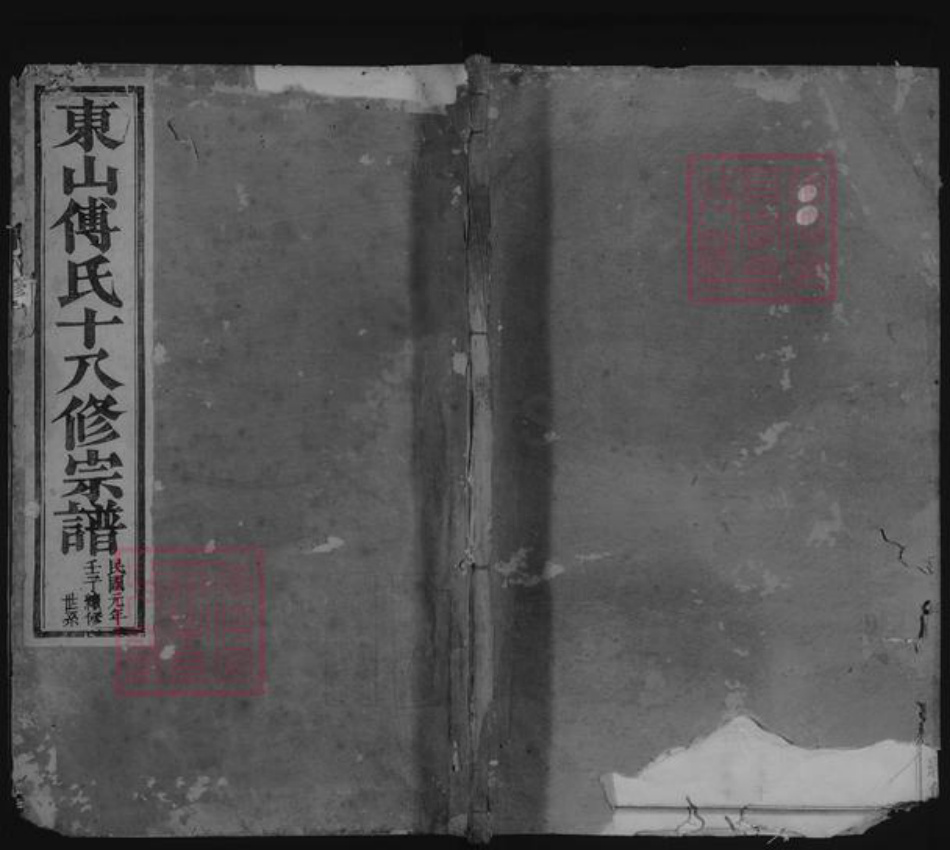 東山傅氏十八修宗譜
民國元年
壬子續修
世系